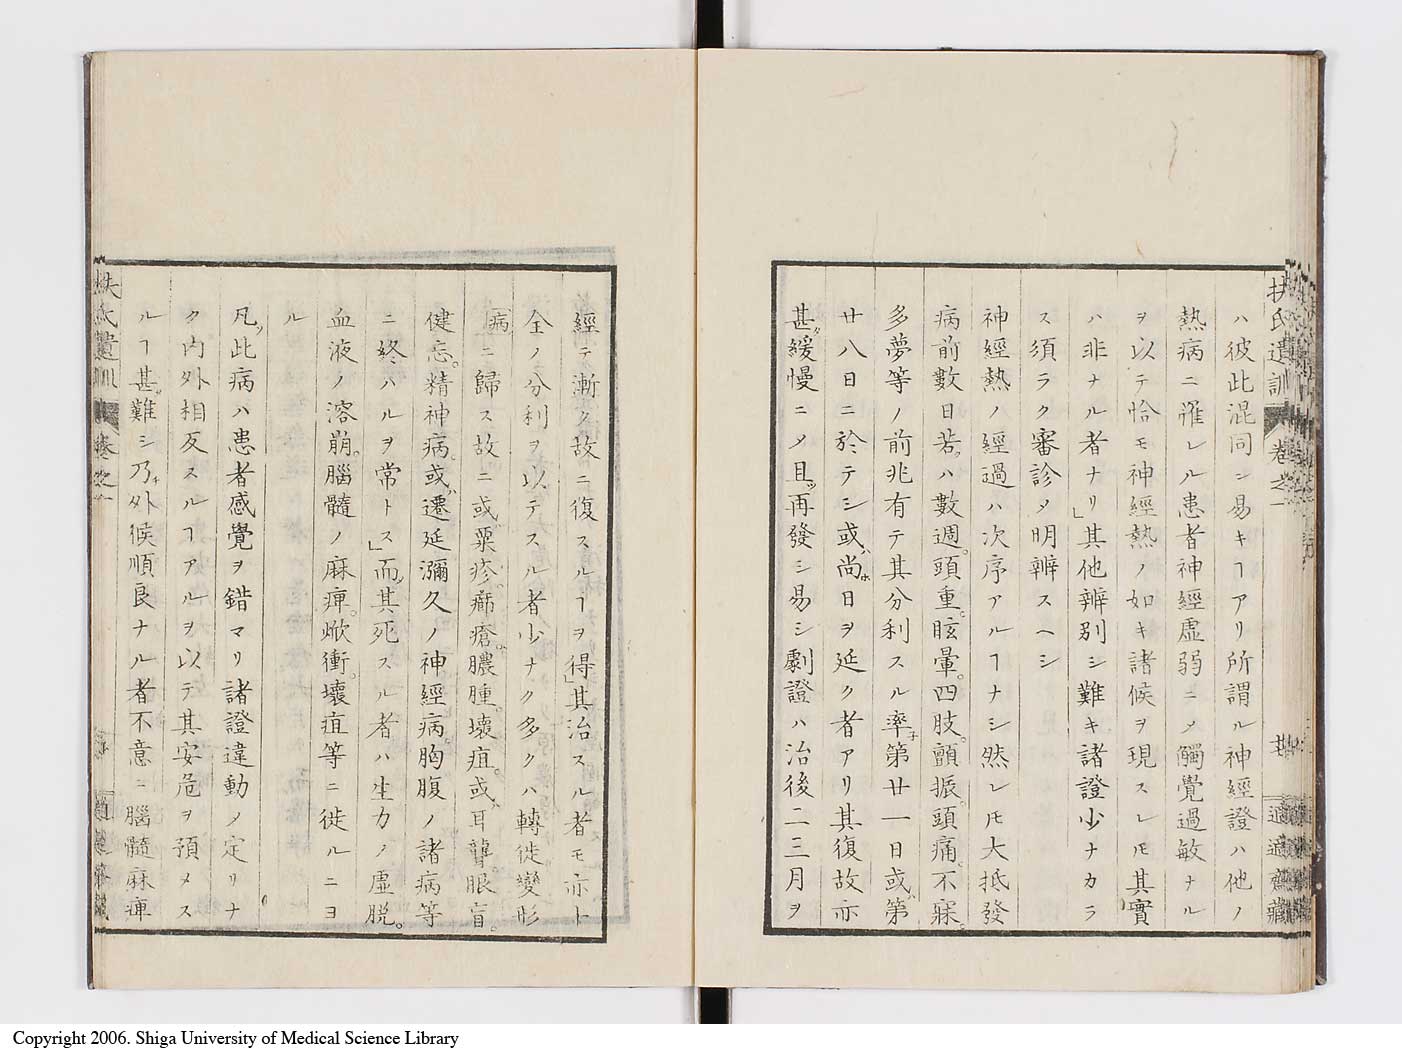 扶氏遺訓 卷之一
適適齋藏
ハ彼此混同シ易キヿアリ所謂ル神經證ハ他ノ
熱病ニ罹レル患者神經虚弱ニメ觸覺過敏ナル
ヲ以テ恰モ神經熱ノ如キ諸候ヲ現スレ𪜈其實
ハ非ナル者ナリ」其他辨別シ難キ諸證少ナカラ
ス須ラク審診メ明辨スヘシ
神經熱ノ經過ハ次序アルヿナシ然レ𪜈大抵發
病前數日若クハ數週。頭重。眩暈。四肢。顫振。頭痛。不寐。
多夢等ノ前兆有テ其分利スル率子第廿一日或ハ第
廿八日ニ於テシ或ハ尚ホ日ヲ延ク者アリ其復故亦
甚タ緩慢ニメ且ツ再發シ易シ劇證ハ治後二三月ヲ
經テ漸ク故ニ復スルヿヲ得」其治スル者モ亦ト
全ノ分利ヲ以テスル者少ナク多クハ轉徙變形
病ニ歸ス故ニ或ハ粟疹。癤瘡。膿腫。壞疽。或ハ耳聾。眼盲。
健忘。精神病。或ハ遷延瀰久ノ神經病。胸腹ノ諸病等
ニ終ハルヲ常トス」而メ其死スル者ハ生力ノ虚脱。
血液ノ溶崩。腦髓ノ麻痺。焮衝。壞疽等ニ徙ルニヨ
ル
凡ソ此病ハ患者感覺ヲ錯マリ諸證違動メ定リナ
ク内外相反スルヿアルヲ以テ其安危ヲ預メス
ルヿ甚タ難シ乃チ外候順良ナル者不意ニ腦髓麻痺
扶氏遺訓 卷之一
Copyright 2006. Shiga University of Medical Science Library